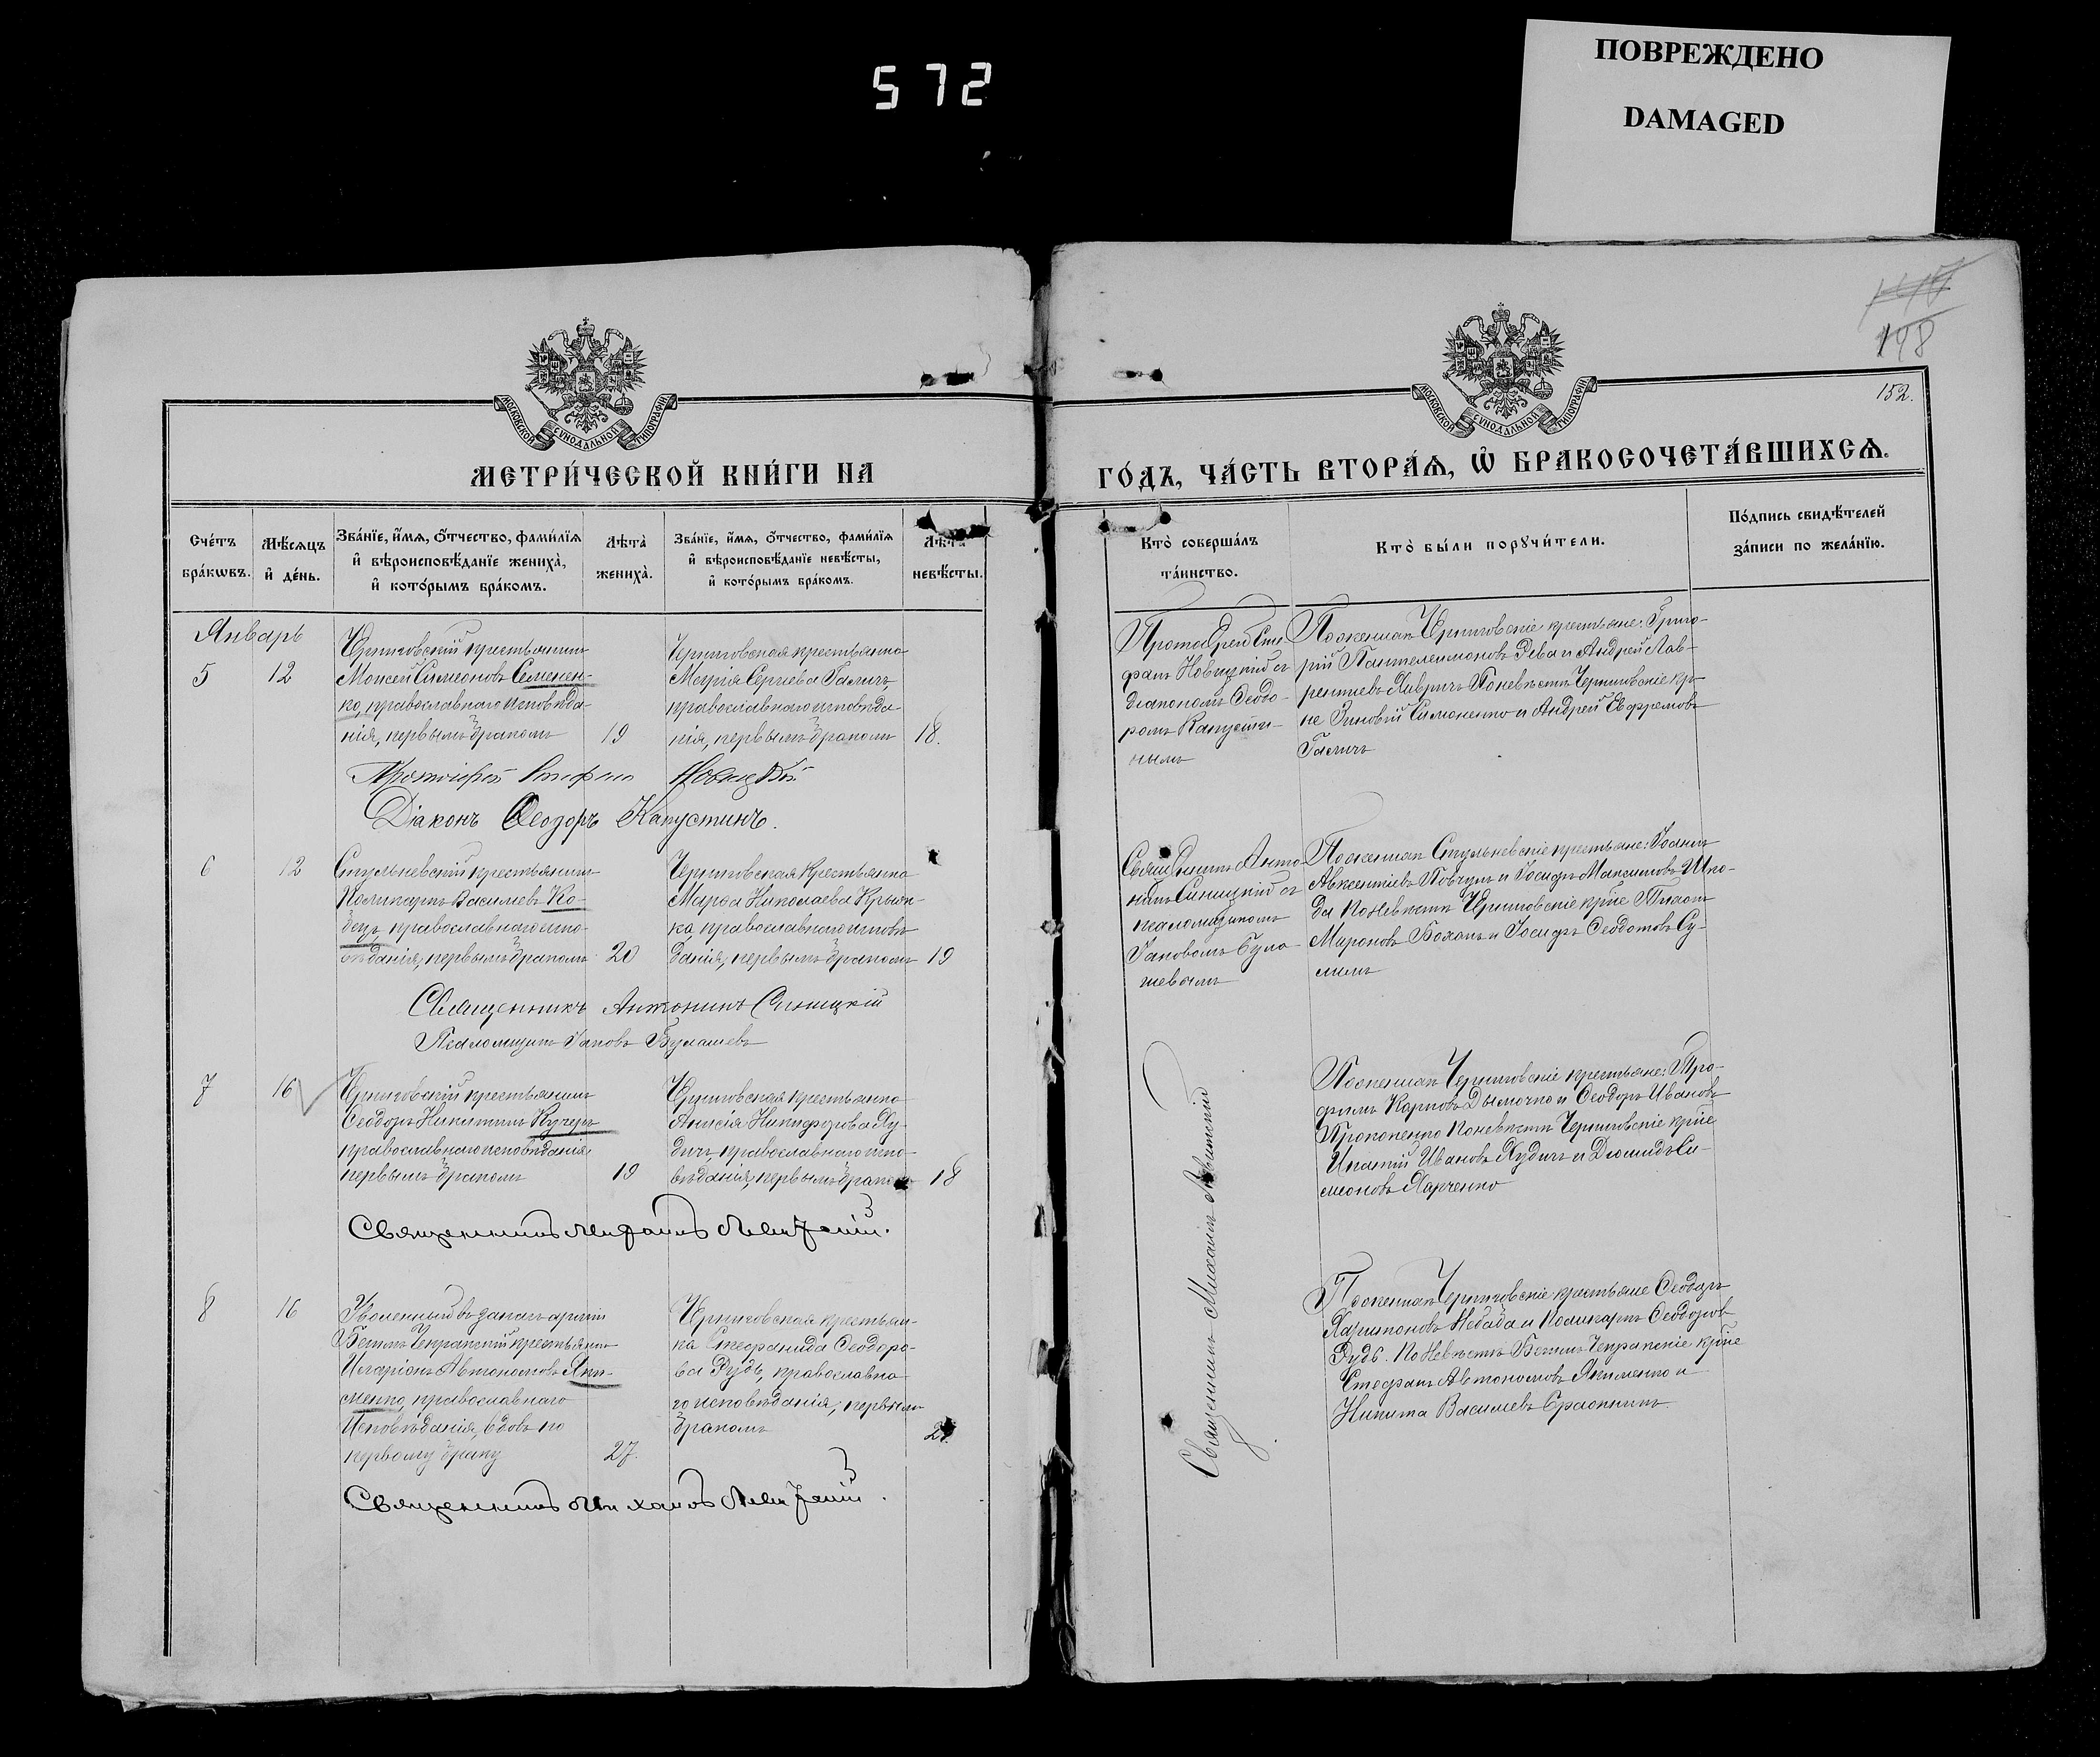 572
ПОВРЕЖДЕНО
DAMAGED
148
152.
МОСКОВСКОЙ СѴНОДАЛЬНОЙ ТИПОГРАФІИ
МОСКОВСКОЙ СѴНОДАЛЬНОЙ ТИПОГРАФІИ
МЕТРИ́ЧЕСКОЙ КНИ́ГИ НА
ГО́ДЪ, ЧА́СТЬ ВТОРА́Ѧ, Ѽ БРАКОСОЧЕТА́ВШИХСѦ.
Сче́тъ
бра́кѡвъ.
Мѣ́сѧцъ
и҆ де́нь.
Зва́нїе, и҆́мѧ, ѻ҆́тчество, фами́лїѧ
и҆ вѣроисповѣ́данїе жениха̀,
и҆ кото́рымъ бра́комъ.
Лѣта̀
жениха̀.
Зва́нїе, и҆́мѧ, ѻ҆́тчество, фами́лїѧ
и҆ вѣроисповѣ́данїе невѣ́сты,
и҆ кото́рымъ бра́комъ.
Лѣта̀
невѣ́сты.
Кто̀ соверша́лъ
та́инство.
Кто̀ бы́ли порꙋчи́тели.
По́дпись свидѣ́телей
за́писи по жела́нїю.
Январь
5
12
Черниговскій крестьянинъ
Моисей Симеоновъ Семенен-
ко, православнаго исповѣда-
нія, первымъ бракомъ
19
Черниговская крестьянка
Марія Сергіева Галичъ,
православнаго исповѣда-
нія, первымъ бракомъ
18.
Протоіерей Сте-
фанъ Новицкій съ
діакономъ Ѳеодо-
ромъ Капусти-
нымъ
По женихѣ Черниговскіе крестьяне: Григо-
рій Пантелеимоновъ Рева и Андрей Лав-
рентіевъ По невѣстѣ Черниговскіе кр-
не Зиновій Симоненко и Андрей Евфремовъ
Галичъ
Протоіерей Стефанъ Новицкій
Діаконъ Ѳеодоръ Капустинъ.
6
12
Стульневскій крестьянинъ
Поликарпъ Василіевъ Ко-
бецъ, православнаго испо-
вѣданія, первымъ бракомъ
20
Черниговская крестьянка
Марѳа Николаева
ка, православнаго исповѣ-
данія, первымъ бракомъ
19
Священникъ Анто-
нинъ Синицкій съ
псаломщикомъ
Іаковомъ Була-
шевымъ
По женихѣ Стульневскіе крестьяне: Іоаннъ
Авксентіевъ Товчумъ и Іосифъ Максимовъ
По невѣстѣ Черниговскіе кр-не
Мироновъ и Іосифъ Ѳеодотовъ Су-
Священникъ Антонинъ Синицкій
Псаломщикъ Іаковъ Булашевъ
7
16
Черниговскій крестьянинъ
Ѳеодоръ Никитинъ Кучеръ
православнаго исповѣданія
первымъ бракомъ
19
Черниговская крестьянка
Анисія Никифорова Ху-
дичъ, православнаго испо-
вѣданія, первымъ бракомъ
18
По женихѣ Черниговскіе крестьяне: Тро-
фимъ Карповъ Дымочко и Ѳеодоръ Ивановъ
Прокопенко По невѣстѣ Черниговскіе кр-не
Игнатій Ивановъ Худичъ и Діомидъ Си-
меоновъ Харченко
Священникъ Михаилъ Левитскій.
8
16
Уволенный въ запасъ арміи
крестьянинъ
Иларіонъ Автономовъ Яки-
менко, православнаго
исповѣданія, вдовъ по
первому браку
27.
Черниговская крестьян-
ка Стефанида Ѳеодоро-
ва Рудь, православна-
го исповѣданія, первымъ
бракомъ
Священникъ Михаилъ Левитскій
По женихѣ Черниговскіе крестьяне Ѳеодоръ
Харитоновъ Небаба и Поликарпъ Ѳеодоровъ
Рудь. По невѣстѣ кр-не
Стефанъ Автономовъ Якименко и
Никита Василіевъ
Священникъ Михаилъ Левитскій.